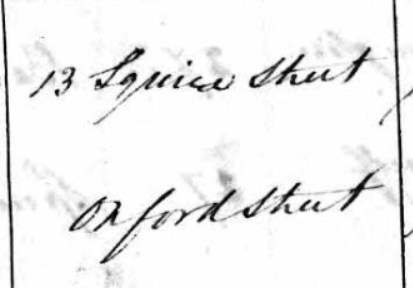 13 Squire Street
Oxford Street